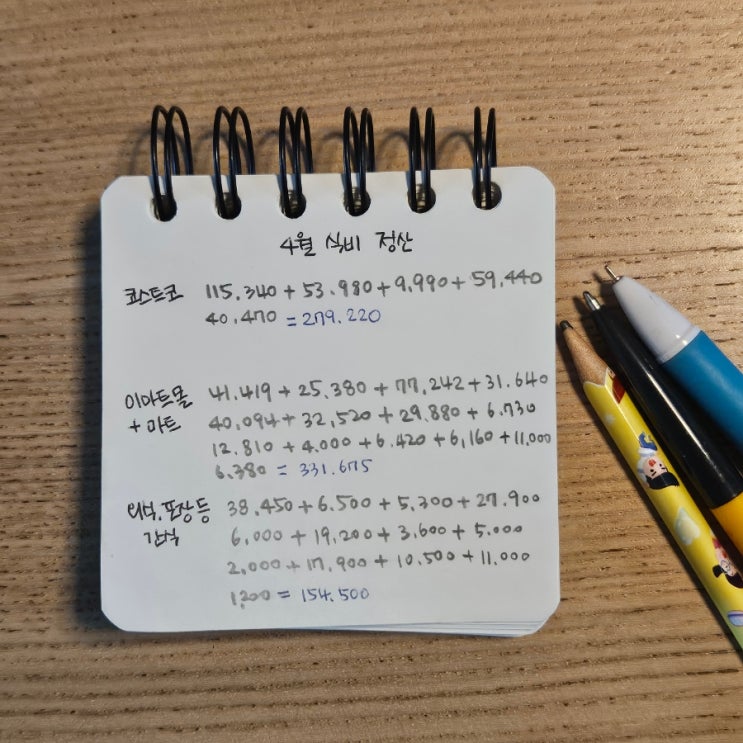 4월 식비 정산
코스트코 115.340 + 53.980 + 9,990 + 59,440
40,470 = 279.220
이마트몰 41.419 + 25,380 + 77,242 + 31.640
+ 마트 40,094 + 32,520 + 29.880 + 6.730
12.810 + 4.000 + 6.420 + 6,160 + 11,000
6,380 = 331.675
외식.포장 등 38,450 + 6.500 + 5,300 + 27.900
간식 6,000 + 19,200 + 3,600 + 5.000
2,000 + 17,900 + 10,500 + 11,000
1,200 = 154,500